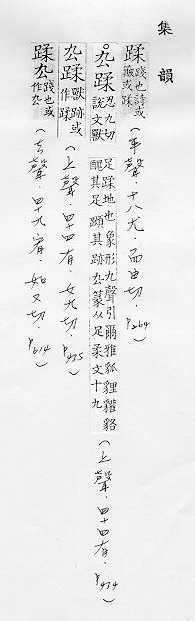 集韻
蹂 踐也詩或蔌或蹂(平聲.十八尤.而由切.P264)
厹蹂 忍九切說文獸足蹂地也象形九聲引爾雅狐貍貛貉醜其足蹞其跡厹篆从足柔文十九(上聲.四十四有.P434)
厹蹂 獸跡或作蹂(上聲.四十四有.女九切.P435)
蹂厹 踐也或作厹(去聲.四十九宥.如又切.P614)